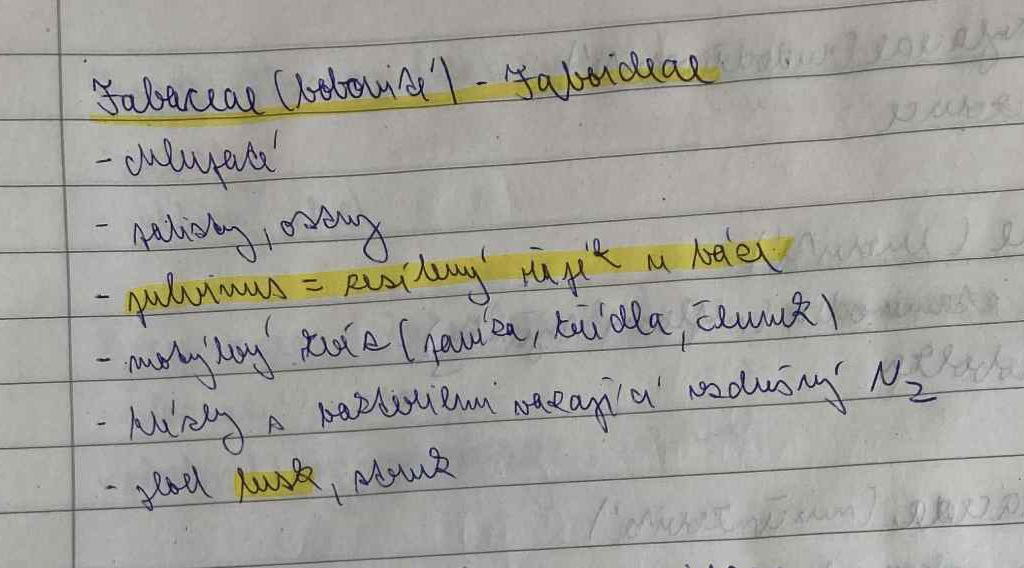 Fabaceae (bobovité) - Faboideae
- chlupaté
- palisty, ostny
- pulvinus = zesílený řapík u báze
- motýlový květ (pavéza, křídla, člunek)
- hlízky s bakteriemi vázající vzdušný N₂
- plod lusk, struk